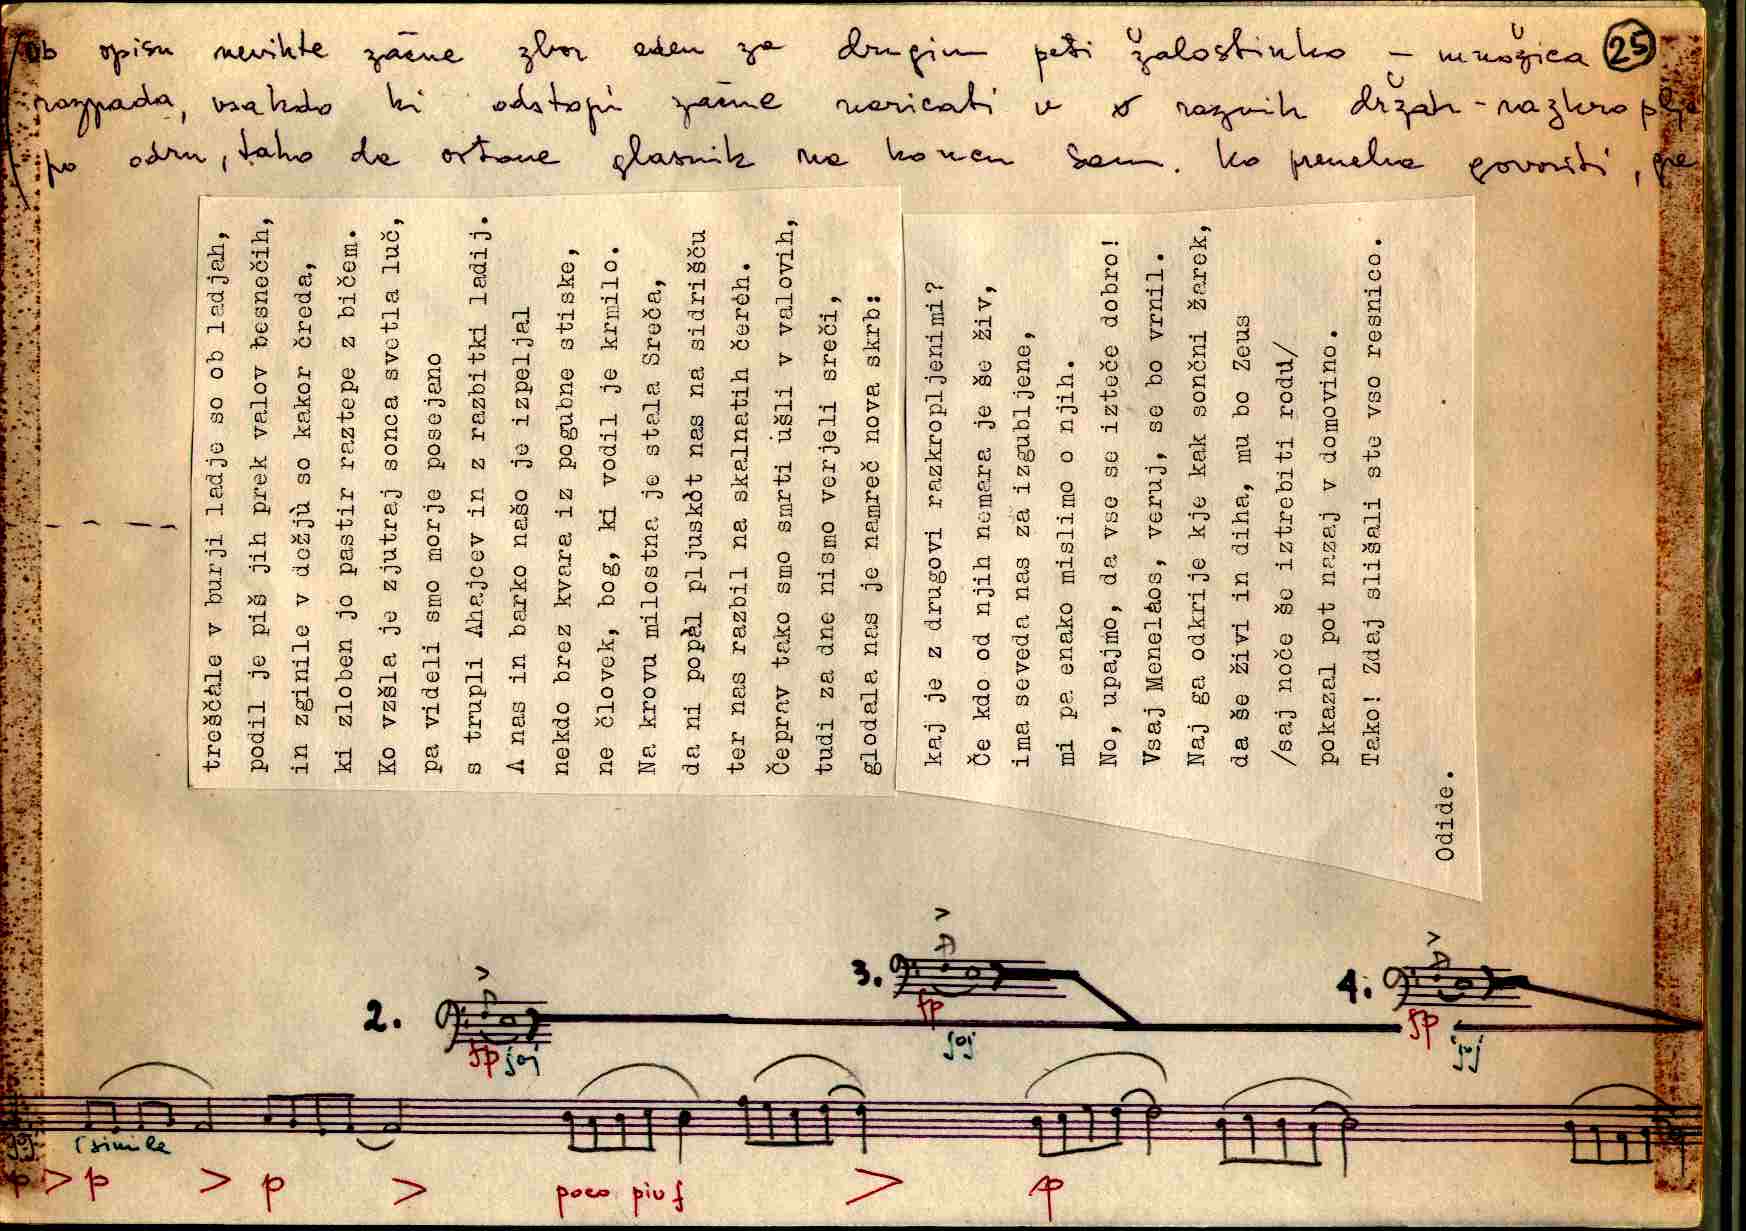 Ob opisu nevihte začne zbor eden za drugim peti žalostinko – množica 25
razpada, vsakdo ki odstopi začne naricati v raznih držah – razkroplje
po odru, tako da ostane glasnik na koncu sam. Ko preneha govoriti, gre
treščale v burji ladje so ob ladjah,
podil je piš jih prek valov besnečih,
in zginile v dežju so kakor čreda,
ki zloben jo pastir raztepe z bičem.
Ko vzšla je zjutraj sonca svetla luč,
pa videli smo morje posejano
s trupli Ahajcev in z razbitki ladij.
A nas in barko našo je izpeljal
nekdo brez kvara iz pogubne stiske,
ne človek, bog, ki vodil je krmilo.
Na krovu milostna je stala Sreča,
da ni popal pljuskot nas na sidrišču
ter nas razbil na skalnatih čereh.
Čeprav tako smo smrti ušli v valovih,
tudi za dne nismo verjeli sreči,
glodala nas je namreč nova skrb:
kaj je z drugovi razkropljenimi?
Če kdo od njih nemara je še živ,
ima seveda nas za izgubljene,
mi pa enako mislimo o njih.
No, upajmo, da vse se izteče dobro!
Vsaj Menelaos, veruj, se bo vrnil.
Naj ga odkrije kje kak sončni žarek,
da še živi in diha, mu bo Zeus
/saj noče še iztrebiti rodu/
pokazal pot nazaj v domovino.
Tako! Zdaj slišali ste vso resnico.
Odide.
2. 3. 4.
fp joj fp joj fp joj
(simile
p p p poco piu f p